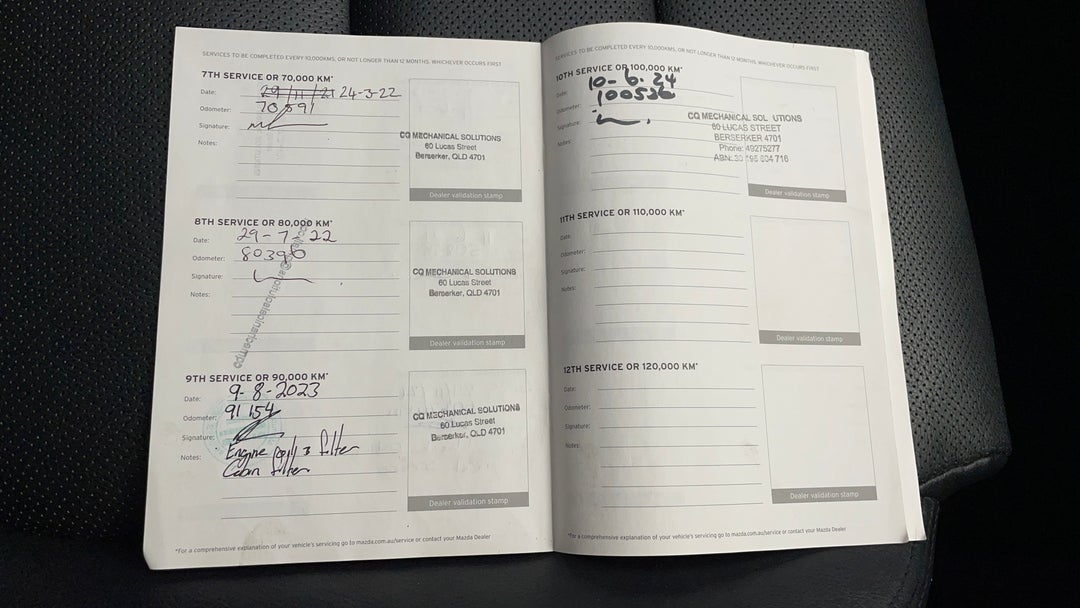 SERVICES TO BE COMPLETED EVERY 10,000KMS, OR NOT LONGER THAN 12 MONTHS, WHICHEVER OCCURS FIRST
7TH SERVICE OR 70,000 KM*
Date: 29/11/21 24-3-22
Odometer: 70591
Signature:
Notes:
CQ MECHANICAL SOLUTIONS
60 Lucas Street
Berserker, QLD 4701
Dealer validation stamp
8TH SERVICE OR 80,000 KM*
Date: 29-7-22
Odometer: 80396
Signature:
Notes:
CQ MECHANICAL SOLUTIONS
60 Lucas Street
Berserker, QLD 4701
Dealer validation stamp
9TH SERVICE OR 90,000 KM*
Date: 9-8-2023
Odometer: 91154
Signature:
Notes: Engine filter
Cabin filter
CQ MECHANICAL SOLUTIONS
60 Lucas Street
Berserker, QLD 4701
Dealer validation stamp
*For a comprehensive explanation of your vehicle's servicing go to mazda.com.au/service or contact your Mazda Dealer
SERVICES TO BE COMPLETED EVERY 10,000KMS, OR NOT LONGER THAN 12 MONTHS, WHICHEVER OCCURS FIRST
10TH SERVICE OR 100,000 KM*
Date: 10-6-24
Odometer: 100536
Signature:
Notes:
CQ MECHANICAL SOLUTIONS
60 LUCAS STREET
BERSERKER 4701
Phone: 49275277
ABN: 30 195 604 716
Dealer validation stamp
11TH SERVICE OR 110,000 KM*
Date:
Odometer:
Signature:
Notes:
Dealer validation stamp
12TH SERVICE OR 120,000 KM*
Date:
Odometer:
Signature:
Notes:
Dealer validation stamp
*For a comprehensive explanation of your vehicle's servicing go to mazda.com.au/service or contact your Mazda Dealer